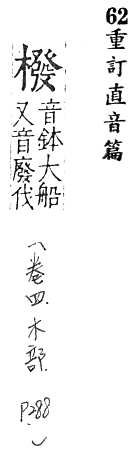 62重訂直音篇
橃
音鉢大船
又音廢伐
(卷四.木部.P288.)